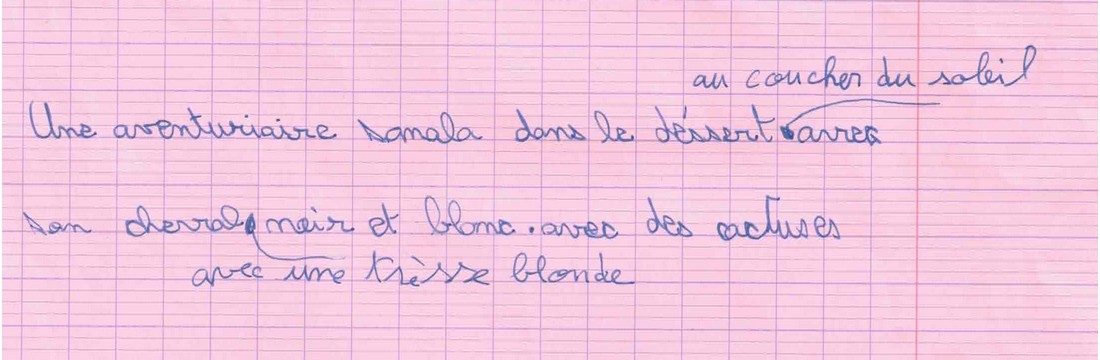 au coucher du soleil
Une aventuriaire somala dans le déssert avrec
son cherval noir et blanc. avec des cactuses
avec une trèsse blonde